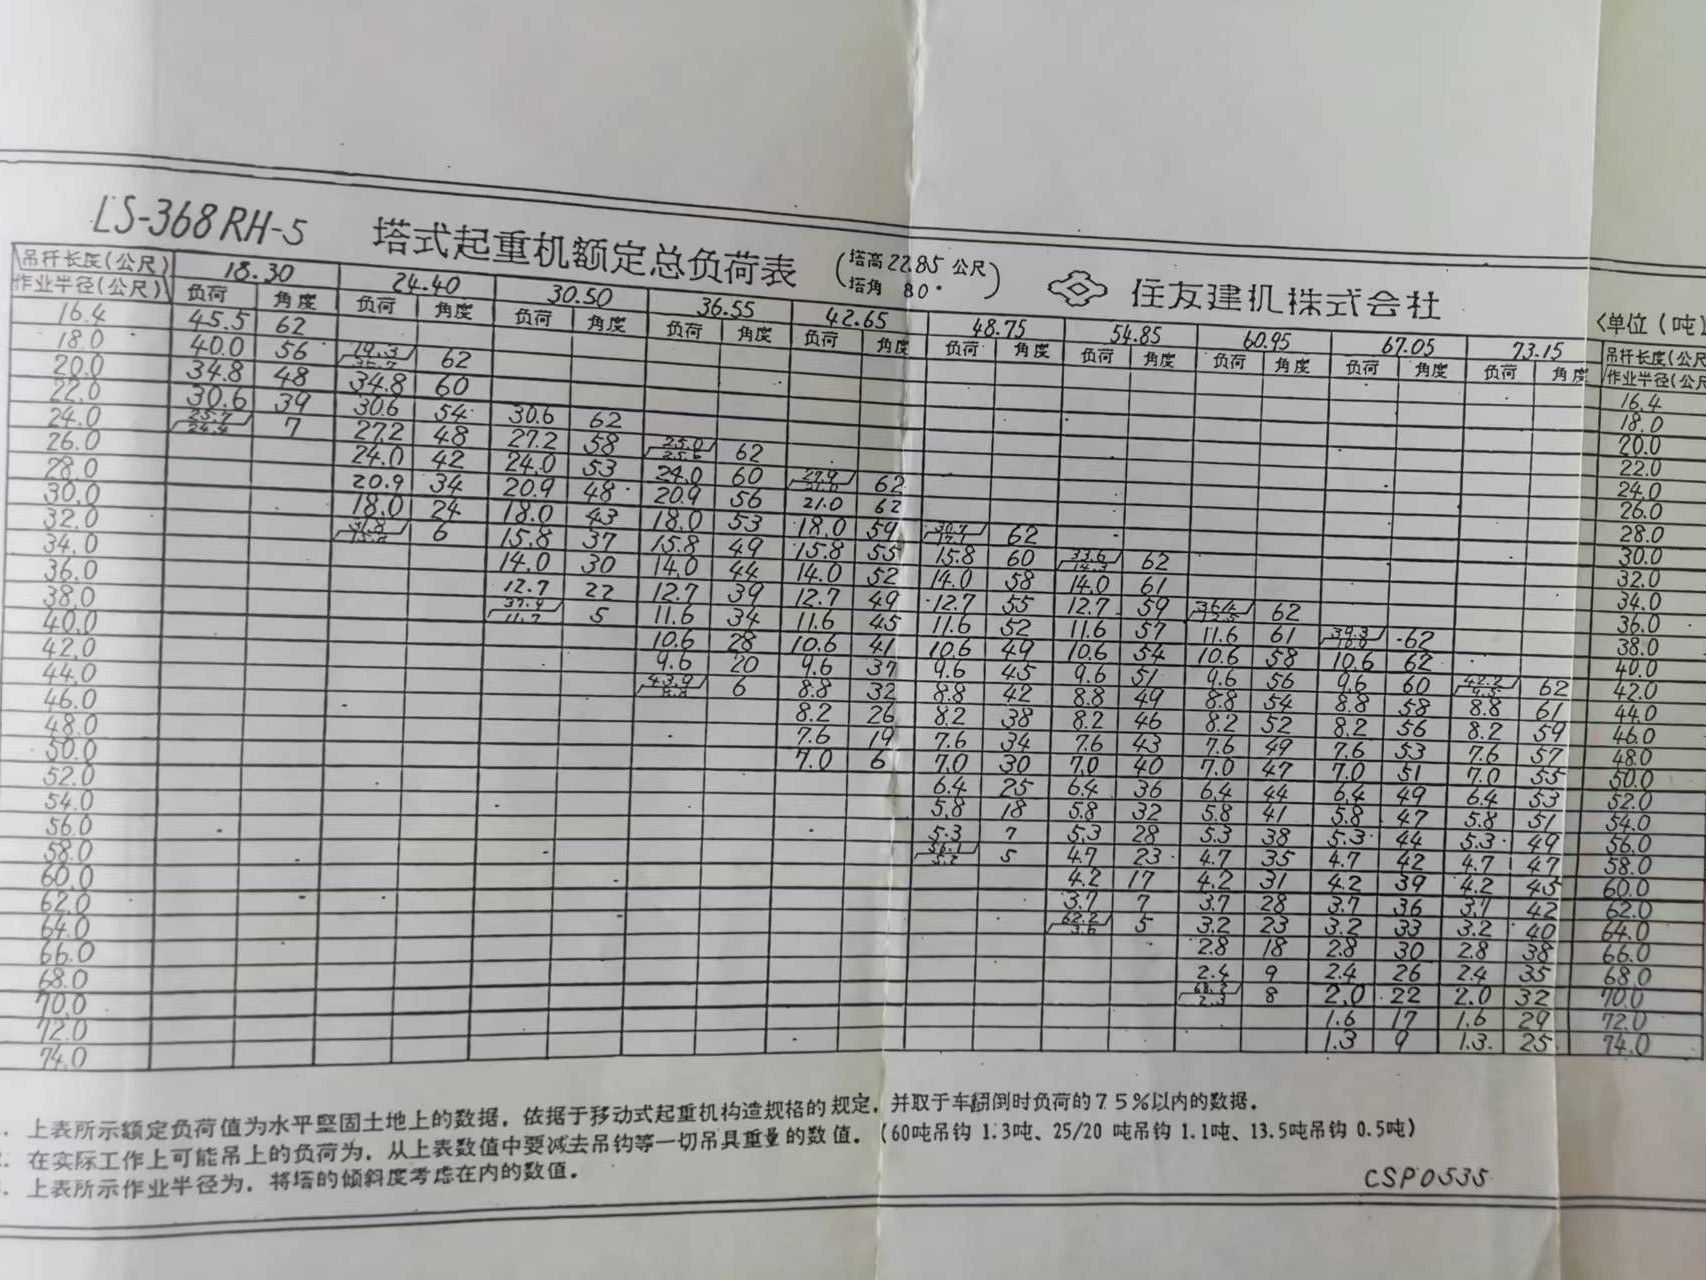 LS-368RH-5 塔式起重机额定总负荷表 (塔高22.85公尺 塔角 80°) 住友建机株式会社
<单位(吨)
吊杆长度(公尺) 18.30 24.40 30.50 36.55 42.65 48.75 54.85 60.95 67.05 73.15 吊杆长度(公尺
作业半径(公尺) 负荷 角度 负荷 角度 负荷 角度 负荷 角度 负荷 角度 负荷 角度 负荷 角度 负荷 角度 负荷 角度 负荷 角度 作业半径(公尺
16.4 45.5 62 16.4
18.0 40.0 56 19.3 62 18.0
20.0 34.8 48 34.8 60 20.0
22.0 30.6 39 30.6 54 30.6 62 22.0
24.0 25.7 24.4 7 27.2 48 27.2 58 25.0 25.6 62 24.0
26.0 24.0 42 24.0 53 24.0 60 27.9 62 26.0
28.0 20.9 34 20.9 48 20.9 56 21.0 62 28.0
30.0 18.0 24 18.0 43 18.0 53 18.0 59 30.7 62 30.0
32.0 31.8 15.8 6 15.8 37 15.8 49 15.8 55 15.8 60 33.6 14.3 62 32.0
34.0 14.0 30 14.0 44 14.0 52 14.0 58 14.0 61 34.0
36.0 12.7 22 12.7 39 12.7 49 12.7 55 12.7 59 36.4 62 36.0
38.0 37.9 11.7 5 11.6 34 11.6 45 11.6 52 11.6 57 11.6 61 39.3 62 38.0
40.0 10.6 28 10.6 41 10.6 49 10.6 54 10.6 58 10.6 62 40.0
42.0 9.6 20 9.6 37 9.6 45 9.6 51 9.6 56 9.6 60 42.2 9.5 62 42.0
44.0 43.9 8.8 6 8.8 32 8.8 42 8.8 49 8.8 54 8.8 58 8.8 61 44.0
46.0 8.2 26 8.2 38 8.2 46 8.2 52 8.2 56 8.2 59 46.0
48.0 7.6 19 7.6 34 7.6 43 7.6 49 7.6 53 7.6 57 48.0
50.0 7.0 6 7.0 30 7.0 40 7.0 47 7.0 51 7.0 55 50.0
52.0 6.4 25 6.4 36 6.4 44 6.4 49 6.4 53 52.0
54.0 5.8 18 5.8 32 5.8 41 5.8 47 5.8 51 54.0
56.0 5.3 7 5.3 28 5.3 38 5.3 44 5.3 49 56.0
58.0 56.1 5.2 5 4.7 23 4.7 35 4.7 42 4.7 47 58.0
60.0 4.2 17 4.2 31 4.2 39 4.2 45 60.0
62.0 3.7 7 3.7 28 3.7 36 3.7 42 62.0
64.0 62.2 3.6 5 3.2 23 3.2 33 3.2 40 64.0
66.0 2.8 18 2.8 30 2.8 38 66.0
68.0 2.4 9 2.4 26 2.4 35 68.0
70.0 68.2 2.3 8 2.0 22 2.0 32 70.0
72.0 1.6 17 1.6 29 72.0
74.0 1.3 9 1.3 25 74.0
. 上表所示额定负荷值为水平坚固土地上的数据，依据于移动式起重机构造规格的规定，并取于车翻倒时负荷的75%以内的数据。
. 在实际工作上可能吊上的负荷为，从上表数值中要减去吊钩等一切吊具重量的数值。（60吨吊钩 1.3吨、25/20 吨吊钩 1.1吨、13.5吨吊钩 0.5吨）
. 上表所示作业半径为，将塔的倾斜度考虑在内的数值。
CSP0535